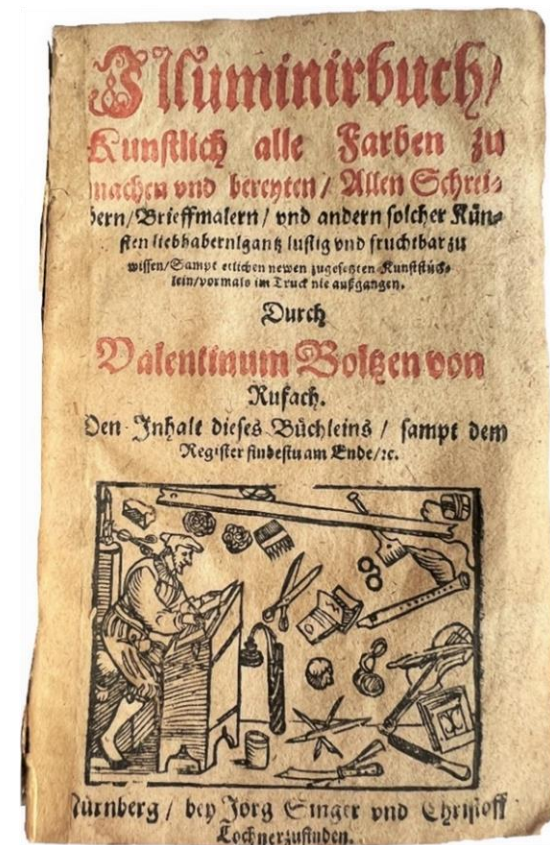 Illuminirbuch/
Kunstlich alle Farben zu
machen vnd bereyten / Allen Schrei-
bern/Brieffmalern / vnd andern solcher Kün-
sten liebhabern/gantz lustig vnd fruchtbar zu
wissen/Sampt etlichen newen zugesetzten Kunststück-
lein/vormals im Truck nie außgangen.
Durch
Valentinum Boltzen von
Rufach.
Den Inhalt dieses Büchleins / sampt dem
Register findestu am Ende/ꝛc.
Nürnberg / bey Jörg Singer vnd Christoff
Lochner zufinden.